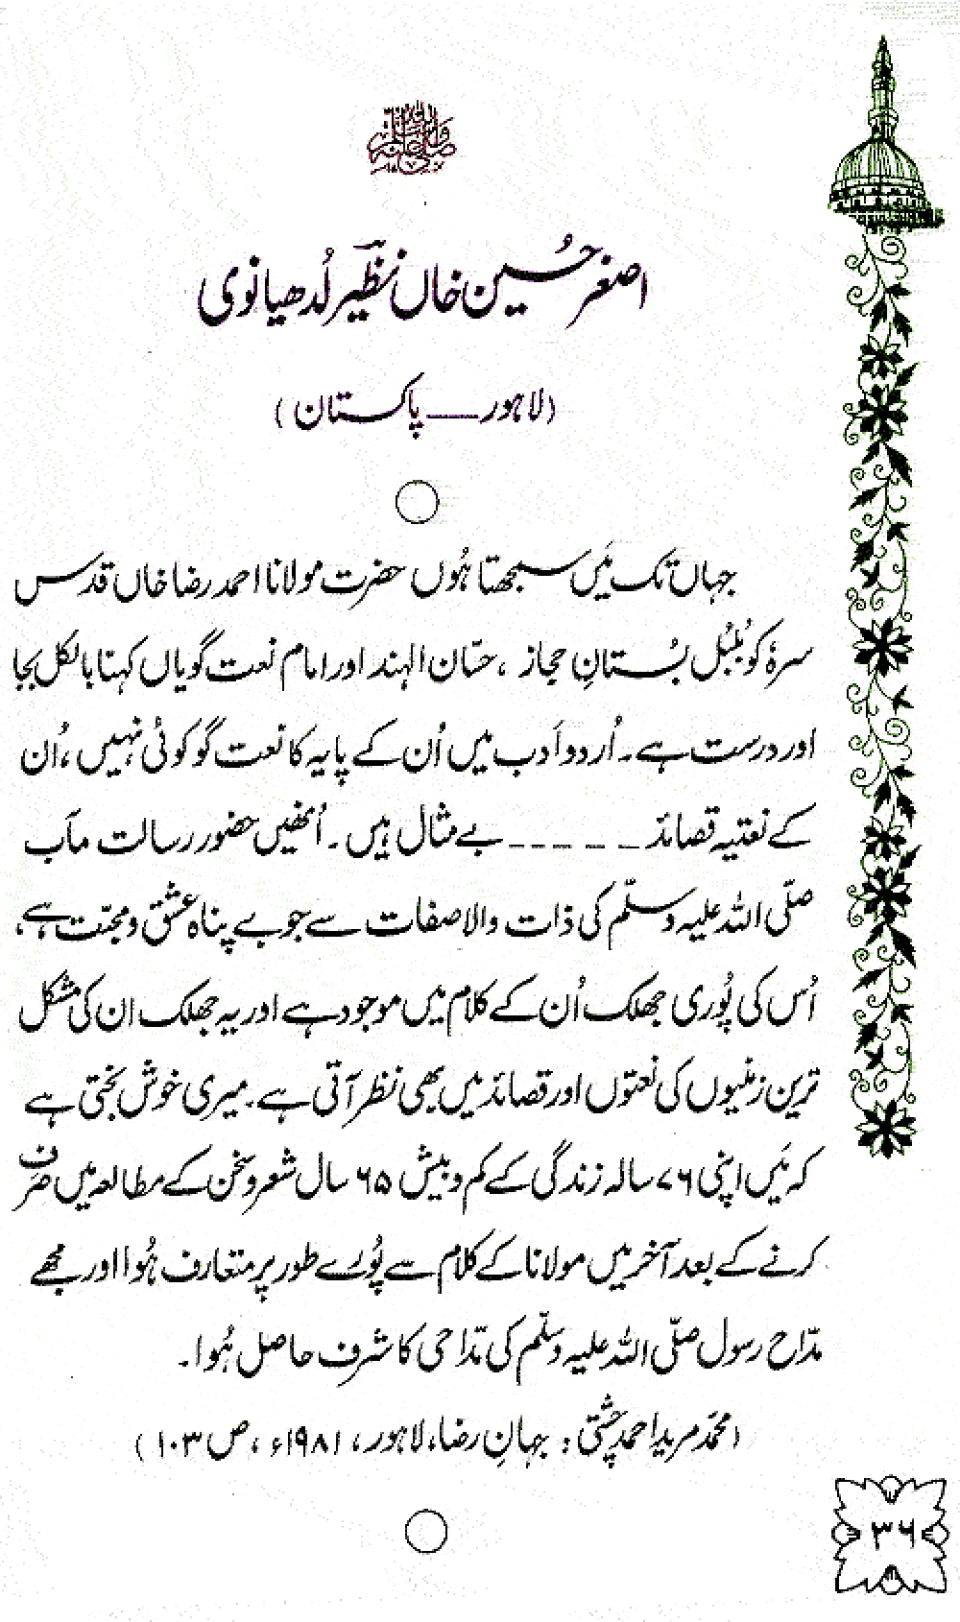 صلی اللہ علیہ وسلم
اصغر حسین خاں نظیرؔ لُدھیانوی
(لاہور — پاکستان)
جہاں تک مَیں سمجھتا ہُوں حضرت مولانا احمد رضا خاں قدس
سرہٗ کو بُلبُلِ بُستانِ حجاز ، حسّان الہند اور امام نعت گویاں کہنا بالکل بجا
اور درست ہے۔ اُردو اَدب میں اُن کے پایہ کا نعت گو کوئی نہیں ، اُن
کے نعتیہ قصائد ۔۔۔۔۔ بے مثال ہیں۔ اُنھیں حضور رسالت مآب
صلّی اللہ علیہ وسلّم کی ذات والا صفات سے جو بے پناہ عشق و محبّت ہے،
اُس کی پُوری جھلک اُن کے کلام میں موجود ہے اور یہ جھلک ان کی مشکل
ترین زمینوں کی نعتوں اور قصائد میں بھی نظر آتی ہے۔ میری خوش بختی ہے
کہ مَیں اپنی ۷۶ سالہ زندگی کے کم و بیش ۶۵ سال شعر و سخن کے مطالعہ میں صرف
کرنے کے بعد آخر میں مولانا کے کلام سے پُورے طور پر متعارف ہُوا اور مجھے
مدّاح رسول صلّی اللہ علیہ وسلّم کی مدّاحی کا شرف حاصل ہُوا۔
(محمّد مرید احمد چشتی : جہانِ رضا، لاہور، ۱۹۸۱ء، ص ۱۰۳)
۳۶